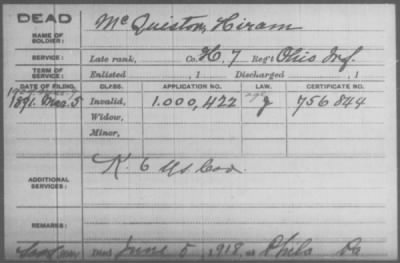 DEAD
NAME OF SOLDIER: McQuiston, Hiram
SERVICE: Late rank, Co. H, 7 Reg't Ohio Inf.
TERM OF SERVICE: Enlisted , 1 Discharged , 1
DATE OF FILING. CLASS. APPLICATION NO. LAW. CERTIFICATE NO.
1891. Mar. 5 Invalid, 1.000,422 J 756844
Widow,
Minor,
ADDITIONAL SERVICES: K. 6 US Cav.
REMARKS:
Died June 5, 1918, at Phila Pa